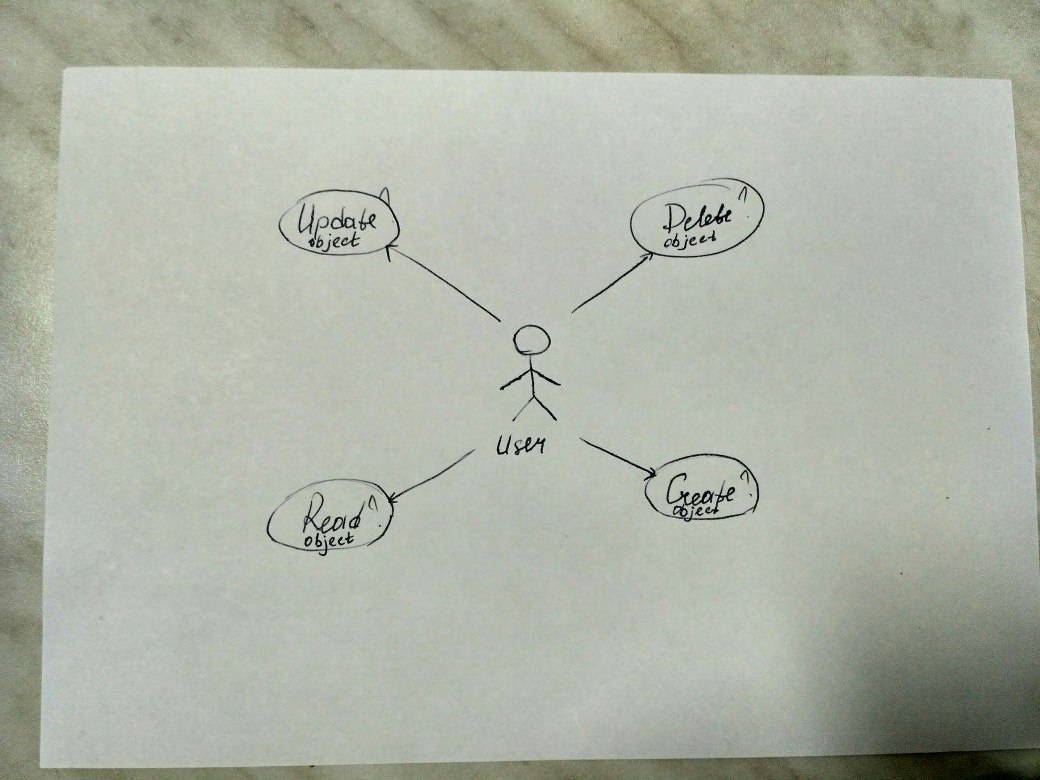 Update
object
Delete
object
User
Read
object
Create
object